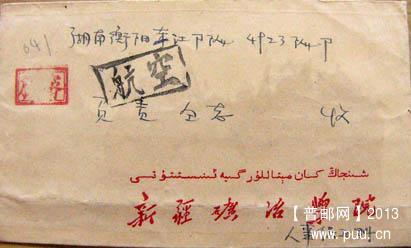 041
湖南衡阳东江部队 4923部队
航空
负责同志 收
شىنجاڭ كان مېتاللۇرگىيە ئىنىستىتۇتى
新疆矿冶学院
【普邮网】2013
www.puu.cn